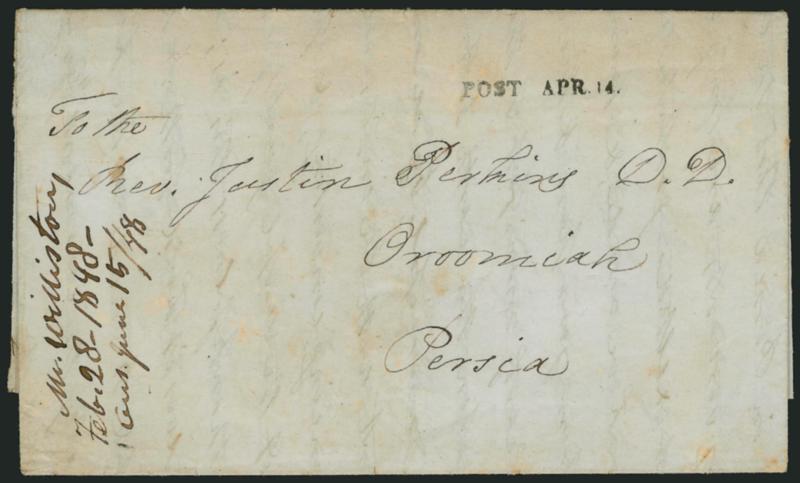 POST APR. 14.
To the
Rev. Justin Perkins D.D.
Oroomiah
Persia
Mr. Williston
Feb. 28 - 1848 -
Ans. June 15/48